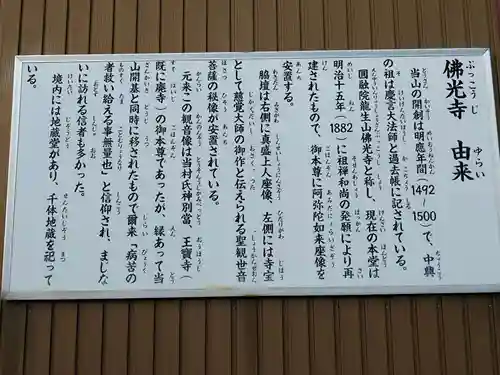 佛光寺　由来
当山の開創は明應年間(1492～1500)で、中興
の祖は慶言大法師と過去帳に記されている。
圓融院龍生山佛光寺と称し、現在の本堂は
明治十五年(1882)に祖禅和尚の発願により再
建されたもので、御本尊に阿弥陀如来座像を
安置する。
脇壇は右側に真盛上人座像、左側には寺宝
として慈覚大師の御作と伝えられる聖観世音
菩薩の秘像が安置されている。
元来この観音像は当村氏神別當、王寶寺(
既に廃寺)の御本尊であったが、縁あって当
山開基と同時に移されたもので爾来「病苦の
者救い給える事無量也」と信仰され、ましな
いに訪れる信者も多かった。
境内には地蔵堂があり、千体地蔵を祀って
いる。